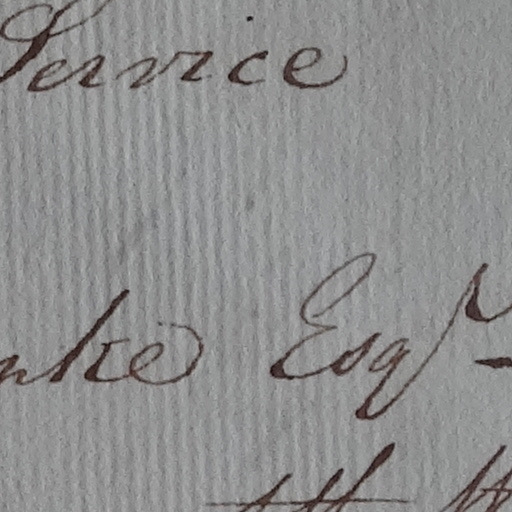 Service
nke Esqr